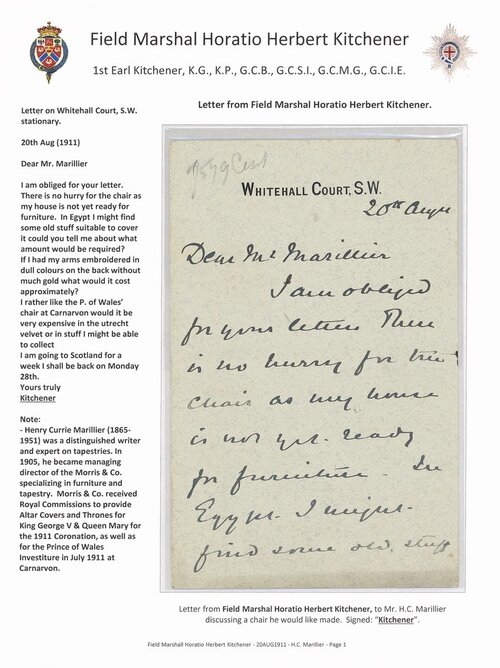 Field Marshal Horatio Herbert Kitchener
1st Earl Kitchener, K.G., K.P., G.C.B., G.C.S.I., G.C.M.G., G.C.I.E.
Letter on Whitehall Court, S.W.
stationary.
20th Aug (1911)
Dear Mr. Marillier
I am obliged for your letter.
There is no hurry for the chair as
my house is not yet ready for
furniture.  In Egypt I might find
some old stuff suitable to cover
it could you tell me about what
amount would be required?
If I had my arms embroidered in
dull colours on the back without
much gold what would it cost
approximately?
I rather like the P. of Wales'
chair at Carnarvon would it be
very expensive in the utrecht
velvet or in stuff I might be able
to collect
I am going to Scotland for a
week I shall be back on Monday
28th.
Yours truly
Kitchener
Note:
- Henry Currie Marillier (1865-
1951) was a distinguished writer
and expert on tapestries. In
1905, he became managing
director of the Morris & Co.
specializing in furniture and
tapestry.  Morris & Co. received
Royal Commissions to provide
Altar Covers and Thrones for
King George V & Queen Mary for
the 1911 Coronation, as well as
for the Prince of Wales
Investiture in July 1911 at
Carnarvon.
Letter from Field Marshal Horatio Herbert Kitchener.
WHITEHALL COURT, S.W.
20th Aug
Dear Mr Marillier
I am obliged
for your letter There
is no hurry for the
chair as my house
is not yet ready
for furniture. In
Egypt I might
find some old stuff
Letter from Field Marshal Horatio Herbert Kitchener, to Mr. H.C. Marillier
discussing a chair he would like made.  Signed: "Kitchener".
Field Marshall Horatio Herbert Kitchener - 20AUG1911 - H.C. Marillier - Page 1